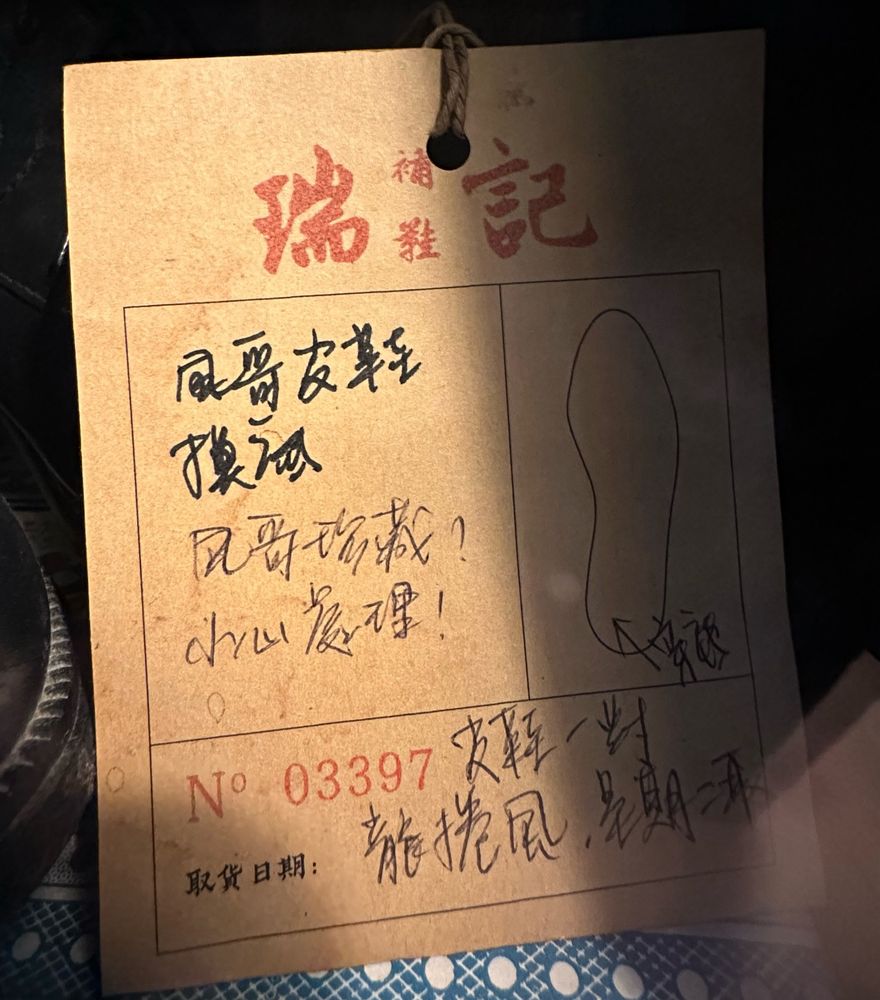 瑞補鞋記
風哥皮鞋
換底
風哥珍藏?
小心處理!
Nº 03397 皮鞋一對
取货日期: 龍捲風,星期二取